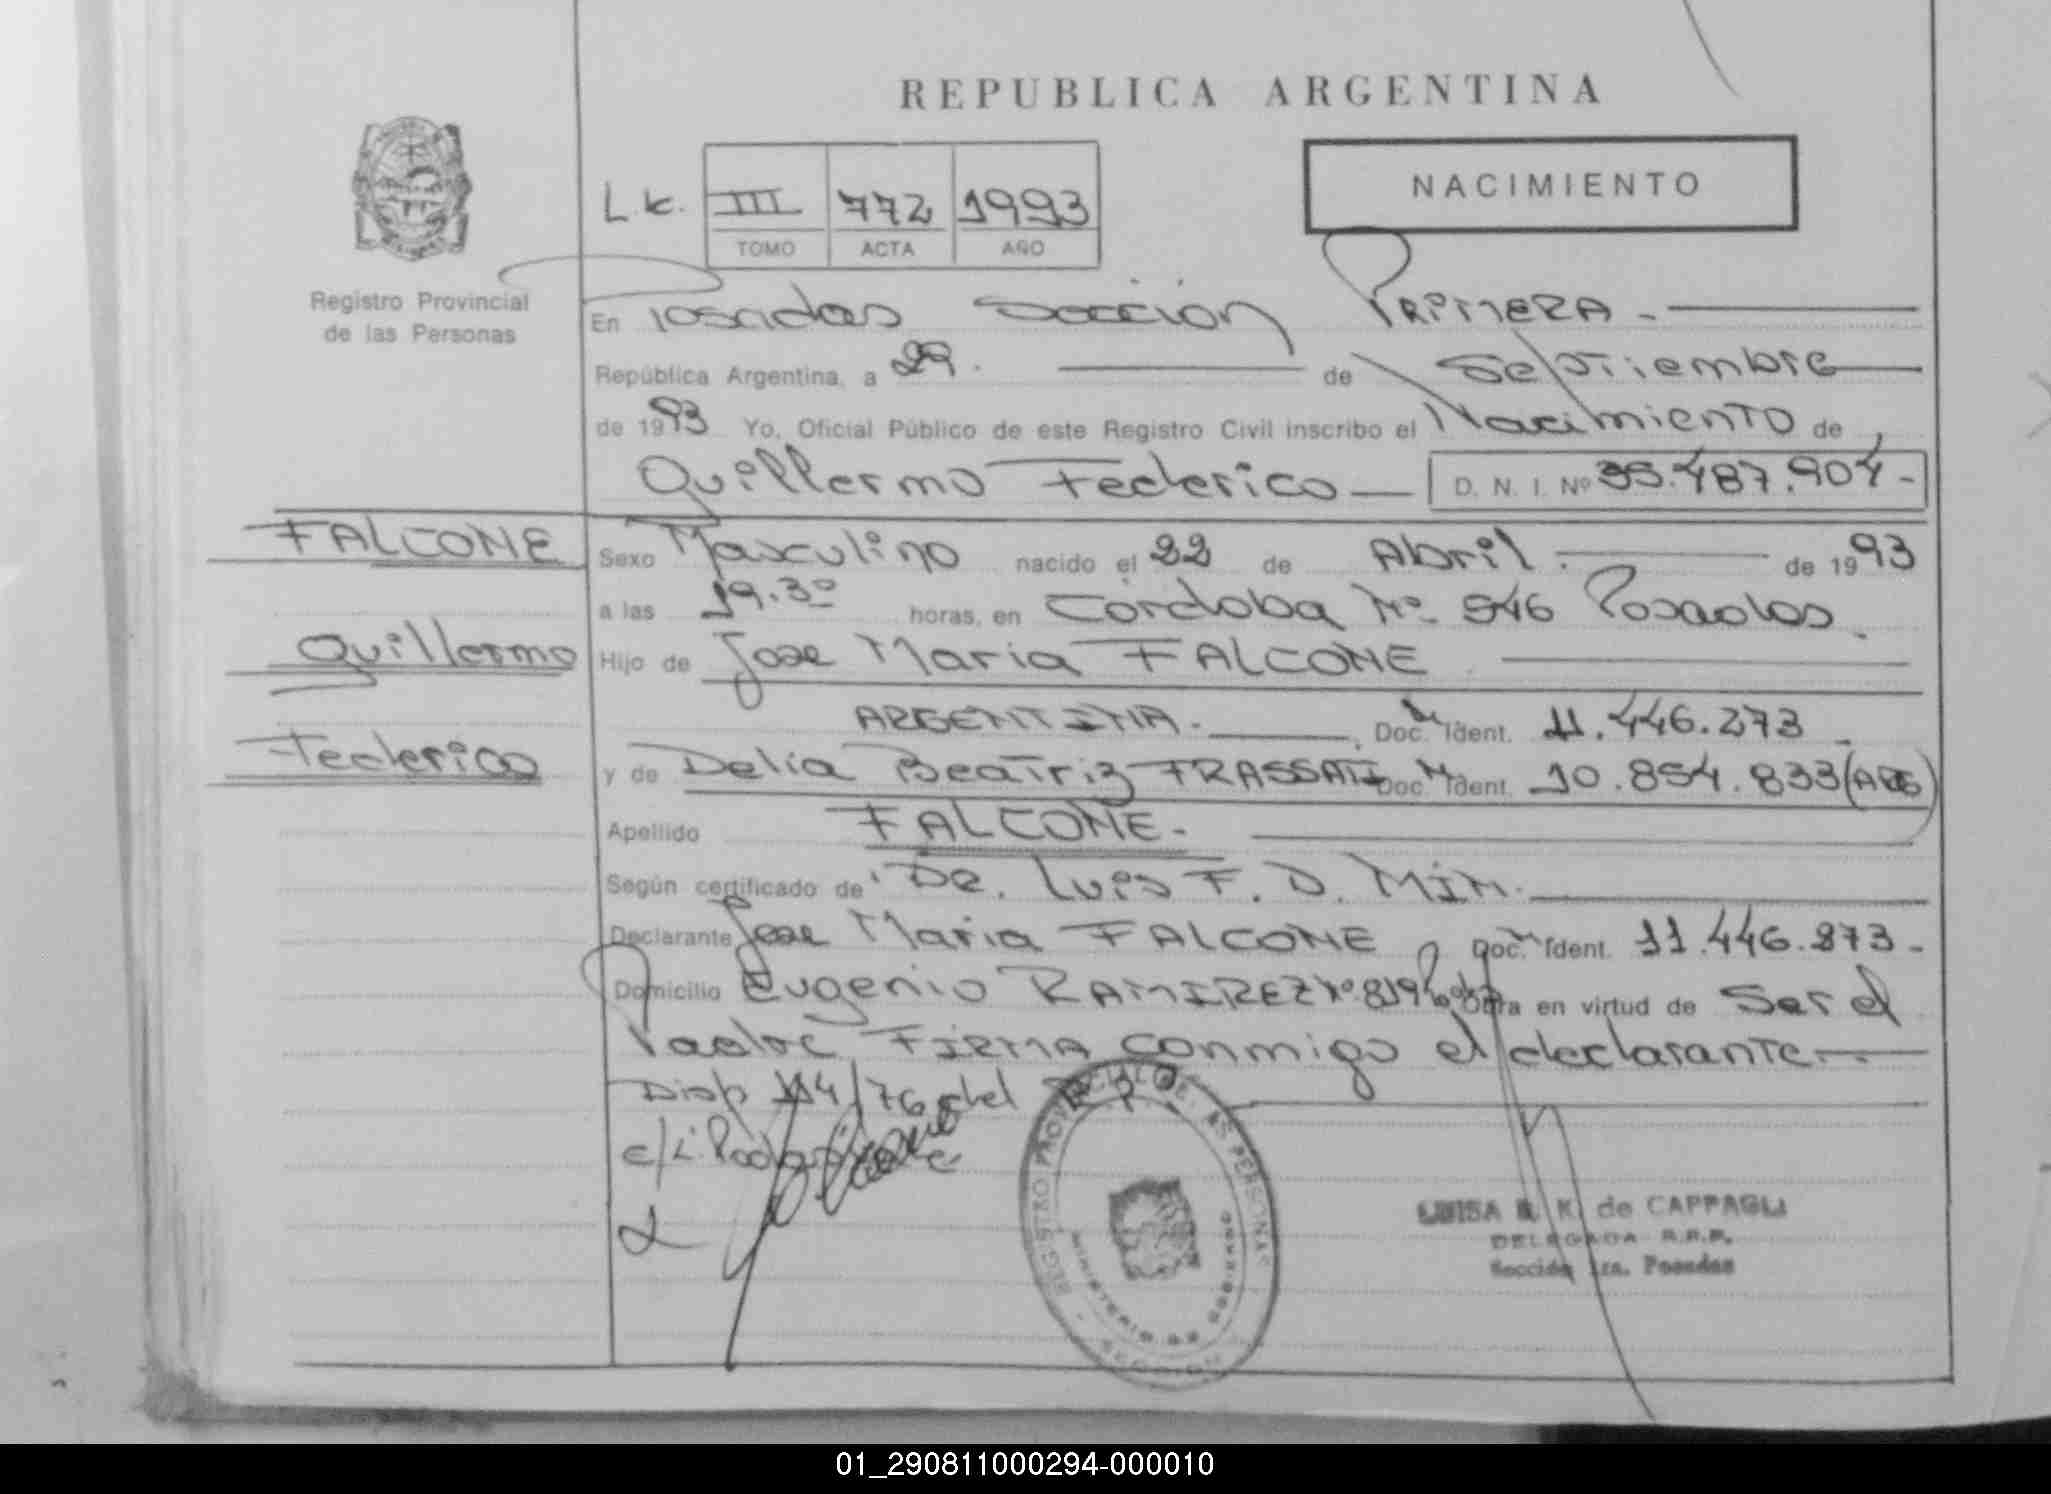 REPUBLICA ARGENTINA
NACIMIENTO
L.k. III 772 1993
TOMO ACTA AÑO
Registro Provincial
de las Personas
En Posadas Sección PRIMERA.-
República Argentina, a 29. de Septiembre
de 1993 Yo, Oficial Público de este Registro Civil inscribo el Nacimiento de
Guillermo Federico D. N. I. Nº 35.487.904.-
FALCONE
Guillermo
Federico
Sexo Masculino nacido el 22 de Abril. de 1993
a las 19.30 horas, en Córdoba Nº 946 Posadas.
Hijo de Jose Maria FALCONE
ARGENTINA. Doc. Ident. 11.446.273
y de Delia Beatriz FRASSATI Doc. Ident. 10.854.833 (ARG)
Apellido FALCONE.-
Según certificado de DR. Luis F. D. MIM.
Declarante Jose Maria FALCONE Doc. Ident. 11.446.273.-
Domicilio Eugenio RAMIREZ Nº 819 Obra en virtud de Ser el
Padre FIRMA conmigo el declarante.-
Disp 114/76 del R.P.
REGISTRO PROVINCIAL DE LAS PERSONAS
MINISTERIO DE GOBIERNO
SECCION
LUISA K. de CAPPAGLI
DELEGADA R.P.P.
Sección 1ra. Posadas
01_290811000294-000010